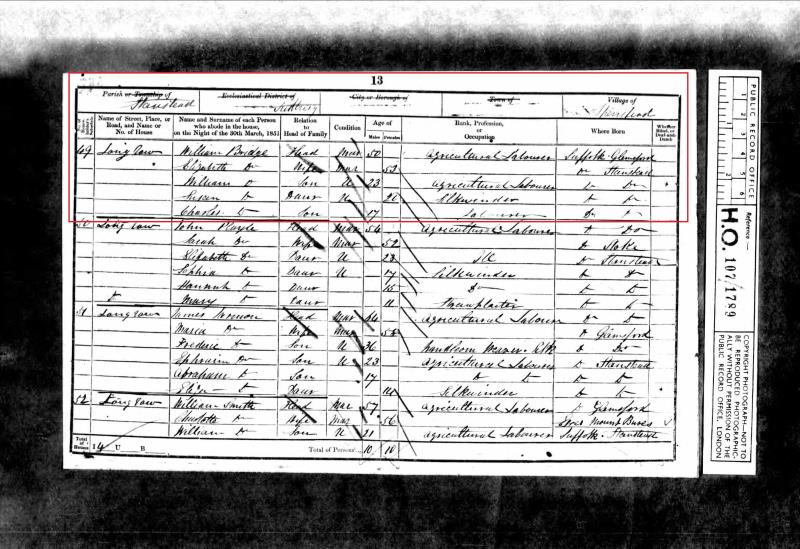 13
Parish or Township of Ecclesiastical District of City or Borough of Town of Village of
Stanstead Stanstead
Name of Street, Place, or Road, and Name or No. of House Name and Surname of each Person who abode in the house, on the Night of the 30th March, 1851 Relation to Head of Family Condition Age of Males Females Rank, Profession, or Occupation Where Born Whether Blind, or Deaf-and-Dumb
49 Long row William Bridge Head Mar 50 agricultural Labourer Suffolk Glemsford
Elizabeth Do Wife Mar 53 Do Stanstead
William Do Son U 23 agricultural Labourer Do Do
Susan Do Daur U 20 Silkwinder Do Do
Charles Do Son 17 Labourer Do Do
50 Long row John Head Mar 54 agricultural Labourer Do Do
Sarah Do Wife Mar 52 Do
Elizabeth Do Daur U 23 Do Stanstead
Sophia Do Daur U 17 Silkwinder Do Do
Hannah Do Daur 15 Do Do Do
Do Mary Do Daur 11 Strawplaiter Do Do
51 Long row James Head Mar 64 agricultural Labourer Do Do
Maria Do Wife Mar 58 Do Glemsford
Frederic Do Son U 36 handloom Weaver Silk Do Do
Ephraim Do Son U 23 agricultural Labourer Do Stanstead
Abraham Do Son 17 Do Do Do
Eliza Do Daur 14 Silkwinder Do Do
52 Long row William Smith Head Mar 57 agricultural Labourer Do Glemsford
Charlotte Do Wife Mar 56 Mount Bures
William Do Son U 21 agricultural Labourer Suffolk Stanstead
Total of Houses I 4 U B Total of Persons... 10 10
PUBLIC RECORD OFFICE
1 2 3 4 5 6
Reference:-
H.O. 107/1789
COPYRIGHT PHOTOGRAPH—NOT TO BE REPRODUCED PHOTOGRAPHICALLY WITHOUT PERMISSION OF THE PUBLIC RECORD OFFICE, LONDON